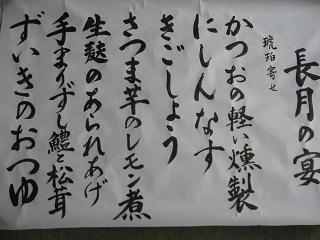 長月の宴
琥珀寄せ
かつおの軽い燻製
にしんなす
きごしょう
さつま芋のレモン煮
生麩のあられあげ
手まりずし鱧と松茸
ずいきのおつゆ